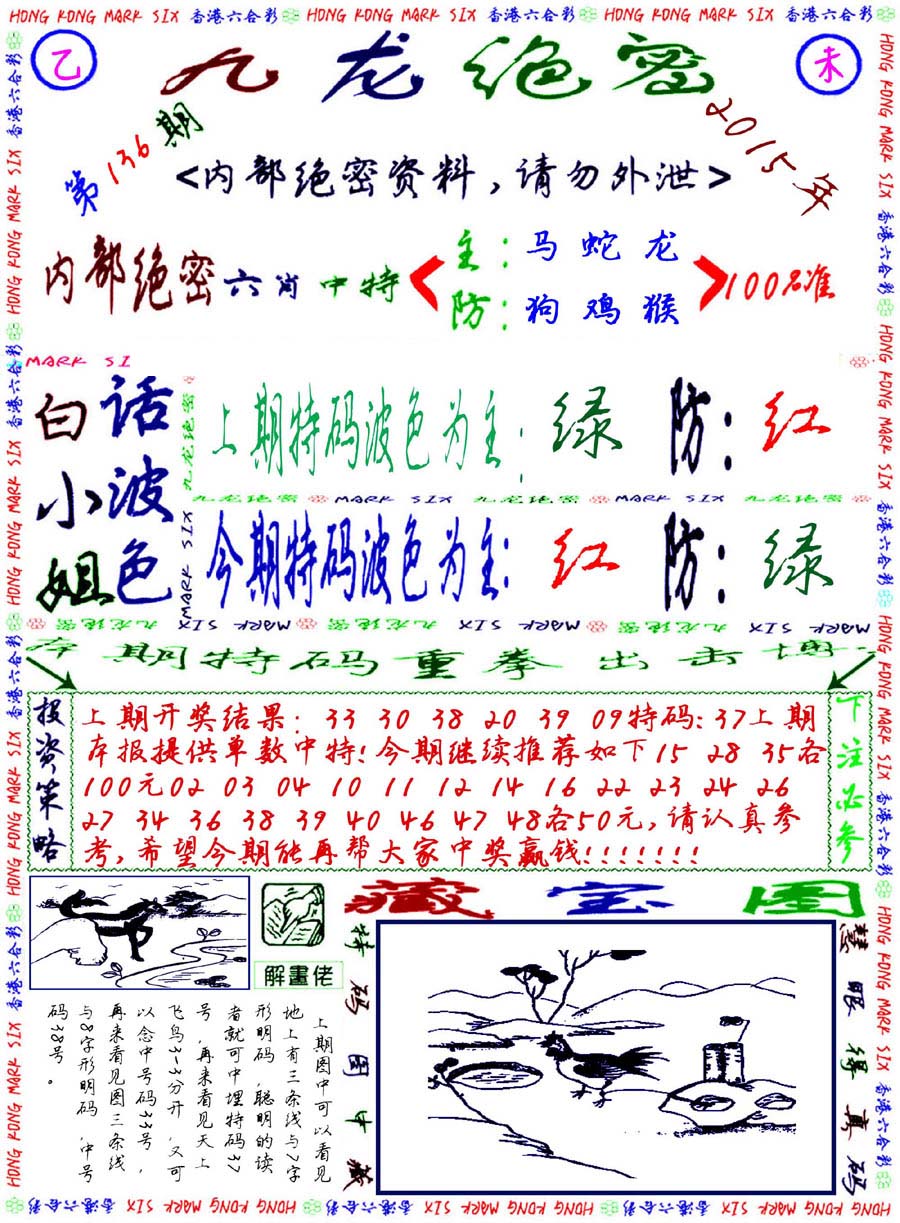 HONG KONG MARK SIX 香港六合彩 HONG KONG MARK SIX 香港六合彩 HONG KONG MARK SIX 香港六合彩
乙
九龙绝密
未
第136期
2015年
<内部绝密资料,请勿外泄>
内部绝密六肖中特
主:马蛇龙
防:狗鸡猴
100%准
MARK SI
白话
小波
姐色
上期特码波色为主:绿 防:红
九龙绝密 MARK SIX 九龙绝密 MARK SIX 九龙绝密
今期特码波色为主:红 防:绿
MARK SIX 九龙绝密 MARK SIX 九龙绝密 MARK SIX 九龙绝密
本期特码重拳出击博
投资策略
上期开奖结果:33 30 38 20 39 09特码:37上期
本报提供单数中特!今期继续推荐如下15 28 35各
100元02 03 04 10 11 12 14 16 22 23 24 26
27 34 36 38 39 40 46 47 48各50元,请认真参
考,希望今期能再帮大家中奖赢钱!!!!!!!
下注必参
藏宝图
解畫佬
特码图中藏
慧眼缘真码
上期图中可以看见
地上有三条线与7字
形明码,聪明的读
者就可中埋特码37
号,再来看见天上
飞鸟3-3分开,又可
以念中号码33号,
再来看见图三条线
与8字形明码,中号
码38号。
HONG KONG MARK SIX 香港六合彩 HONG KONG MARK SIX 香港六合彩 HONG KONG MARK SIX 香港六合彩